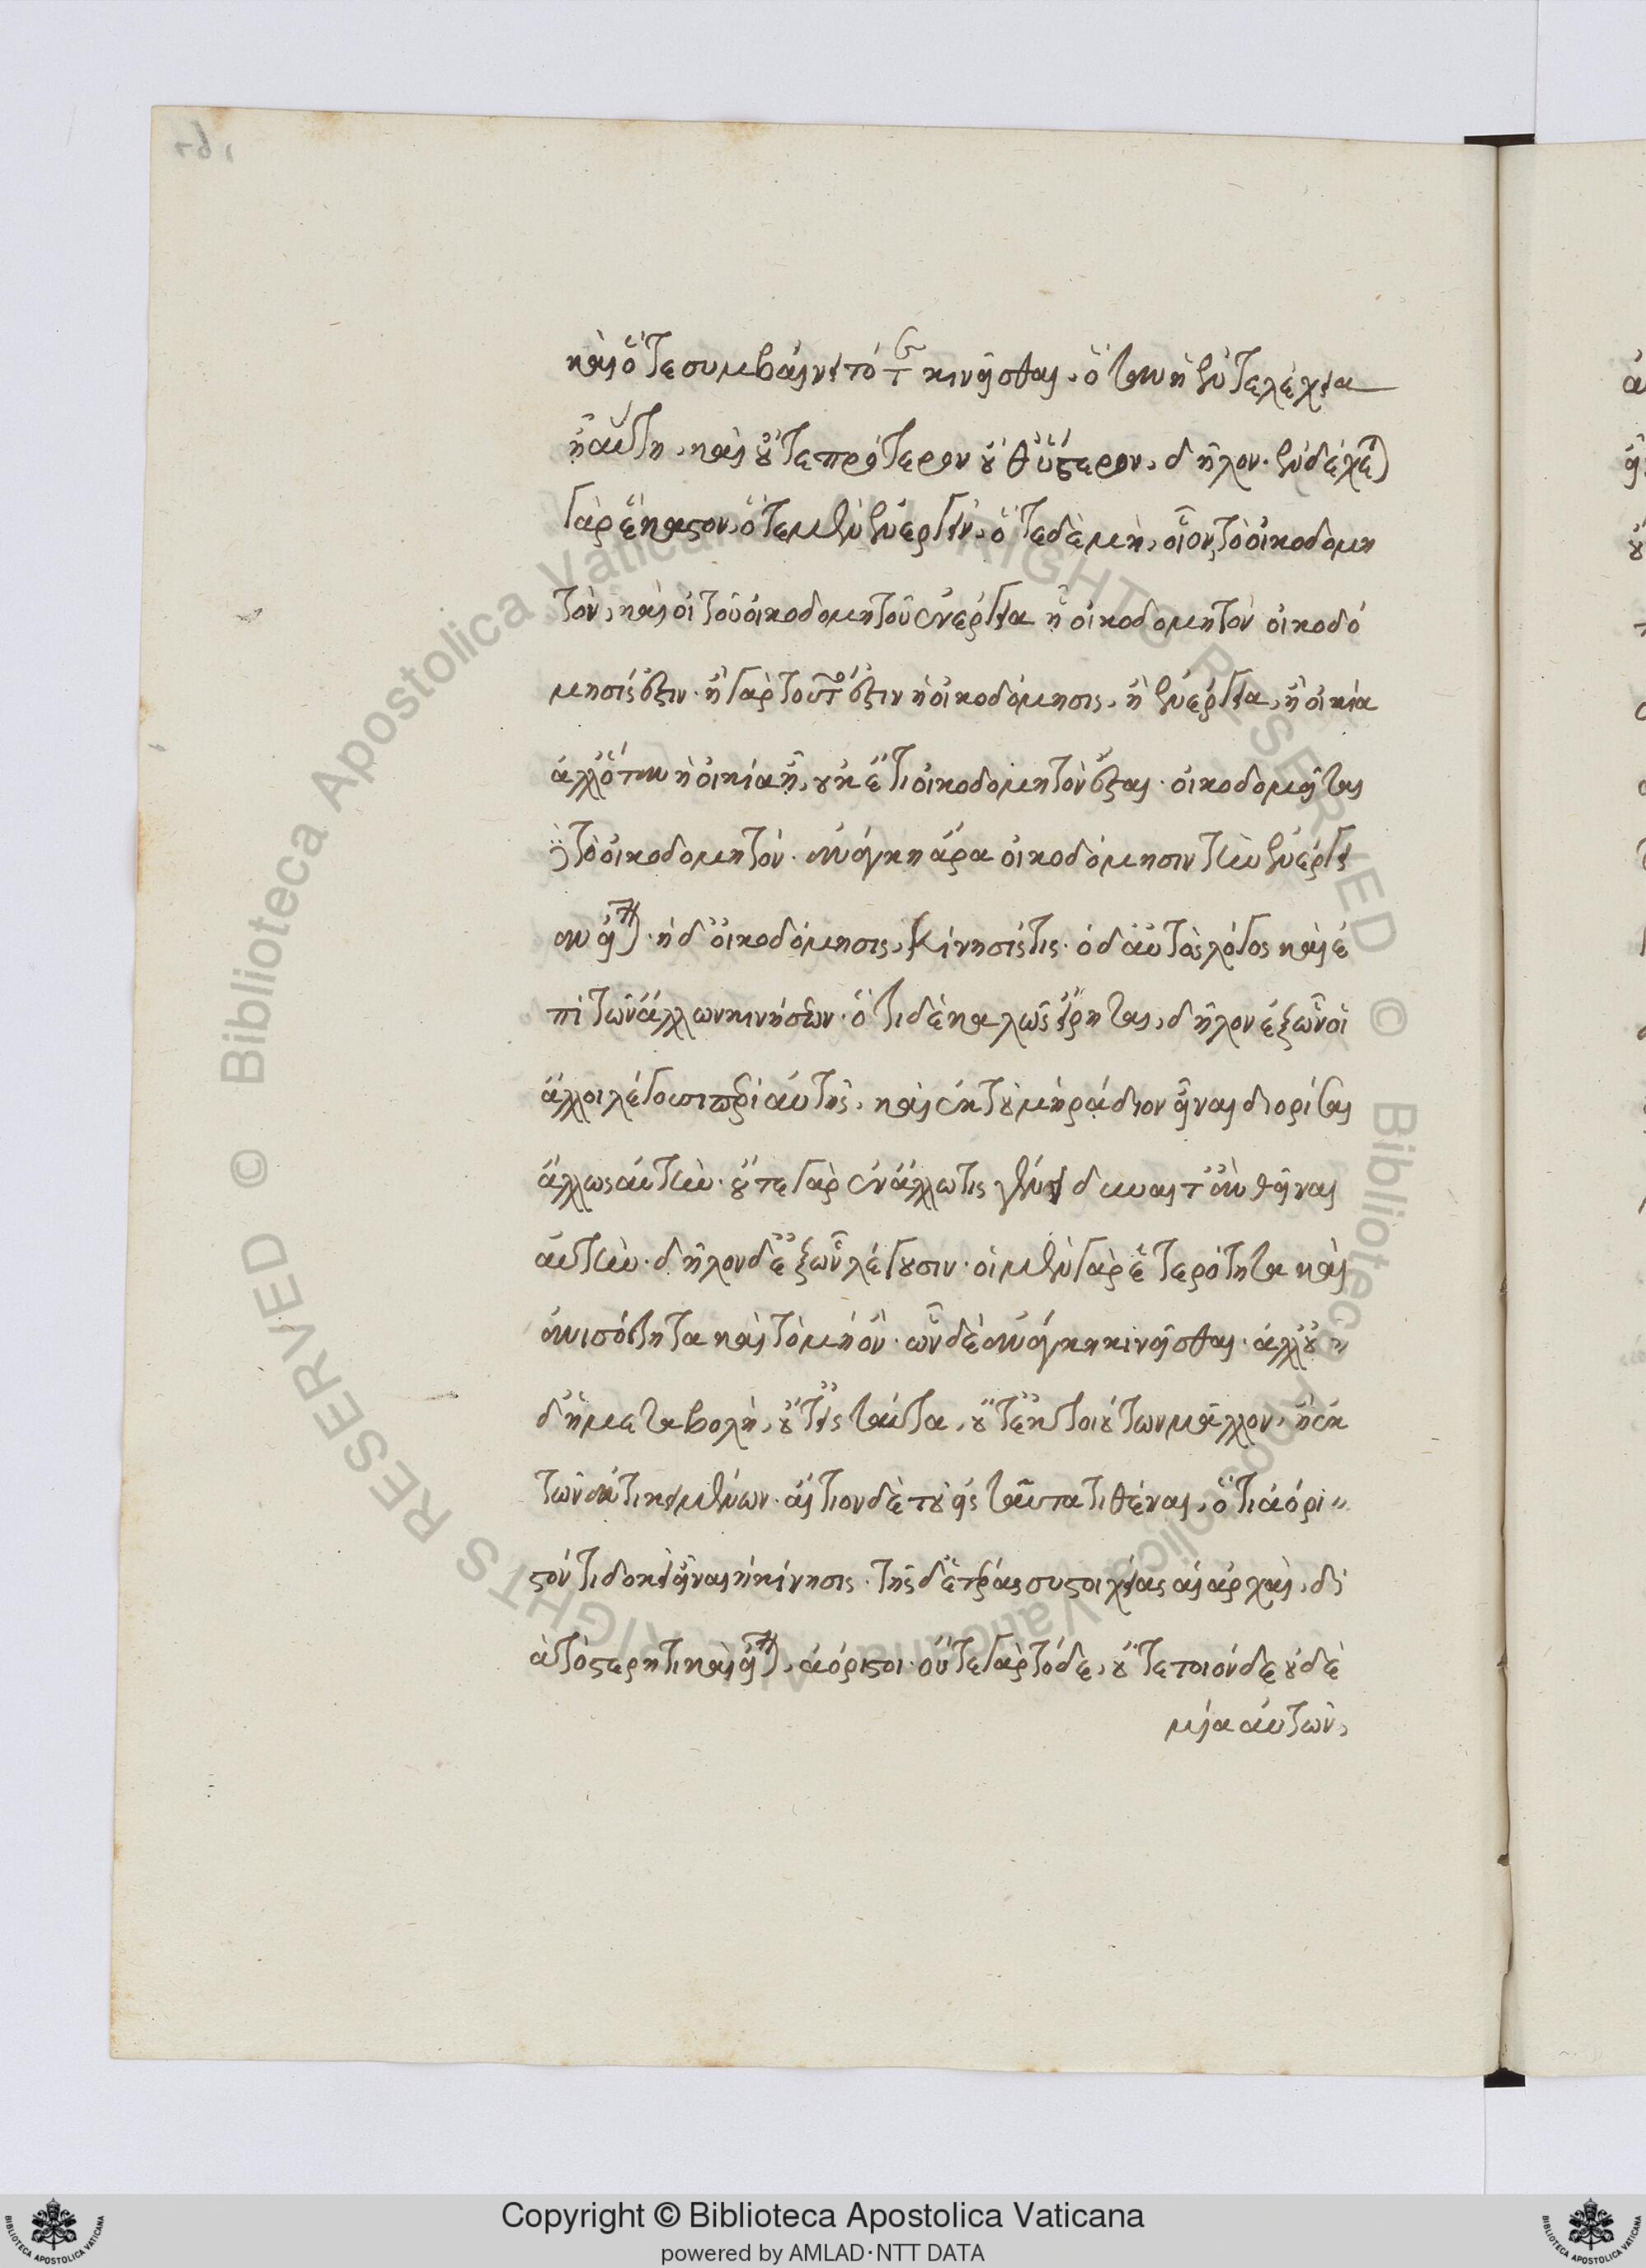 καὶ ὅτε συμβαίνει τότε κινεῖσθαι, ὅταν ἡ ἐντελέχεια
ᾖ αὕτη, καὶ οὔτε πρότερον οὔθ' ὕστερον, δῆλον· ἐνδέχεται
γὰρ ἕκαστον, ὁτὲ μὲν ἐνεργεῖν, ὁτὲ δὲ μὴ, οἷον τὸ οἰκοδομη
τὸν, καὶ οἱ τοῦ οἰκοδομητοῦ ἐνέργεια ᾗ οἰκοδομητὸν οἰκοδό
μησίς ἐστιν· ἢ γὰρ τοῦτ' ἐστιν ἡ οἰκοδόμησις, ἡ ἐνέργεια, ἢ οἰκία
ἀλλ' ὅταν ἡ οἰκία ᾖ, οὐκέτι οἰκοδομητὸν ἔσται· οἰκοδομεῖται
δὲ τὸ οἰκοδομητόν· ἀνάγκη ἄρα οἰκοδόμησιν τὴν ἐνέργει
αν εἶναι· ἡ δ' οἰκοδόμησις, κίνησίς τις· ὁ δ' αὐτὸς λόγος καὶ ἐ
πὶ τῶν ἄλλων κινήσεων· ὅτι δὲ καλῶς εἴρηται, δῆλον ἐξ ὧν οἱ
ἄλλοι λέγουσι περὶ αὐτῆς, καὶ ἐκ τοῦ μὴ ῥᾴδιον εἶναι διορίσαι
ἄλλως αὐτήν· οὔτε γὰρ ἐν ἄλλῳ τις γένει δύναιτ' ἂν θεῖναι
αὐτήν· δῆλον δ' ἐξ ὧν λέγουσιν· οἱ μὲν γὰρ ἑτερότητα καὶ
ἀνισότητα καὶ τὸ μὴ ὄν· ὧν δὲ ἀνάγκη κινεῖσθαι· ἀλλ' οὐ〃
δ' ἡ μεταβολὴ, οὔτ' εἰς ταῦτα, οὔτ' ἐκ τοιούτων μᾶλλον, ἢ ἐκ
τῶν ἀντικειμένων· αἴτιον δὲ τοῦ εἰς ταῦτα τιθέναι, ὅτι ἀόρι〃
στόν τι δοκεῖ εἶναι ἡ κίνησις· τῆς δ' ἑτέρας συστοιχείας αἱ ἀρχαὶ, δι
ὰ τὸ στερητικαὶ εἶναι, ἀόριστοι· οὔτε γὰρ τόδε, οὔτε τοιόνδε οὐδὲ
μία αὐτῶν,
Copyright © Biblioteca Apostolica Vaticana
powered by AMLAD·NTT DATA